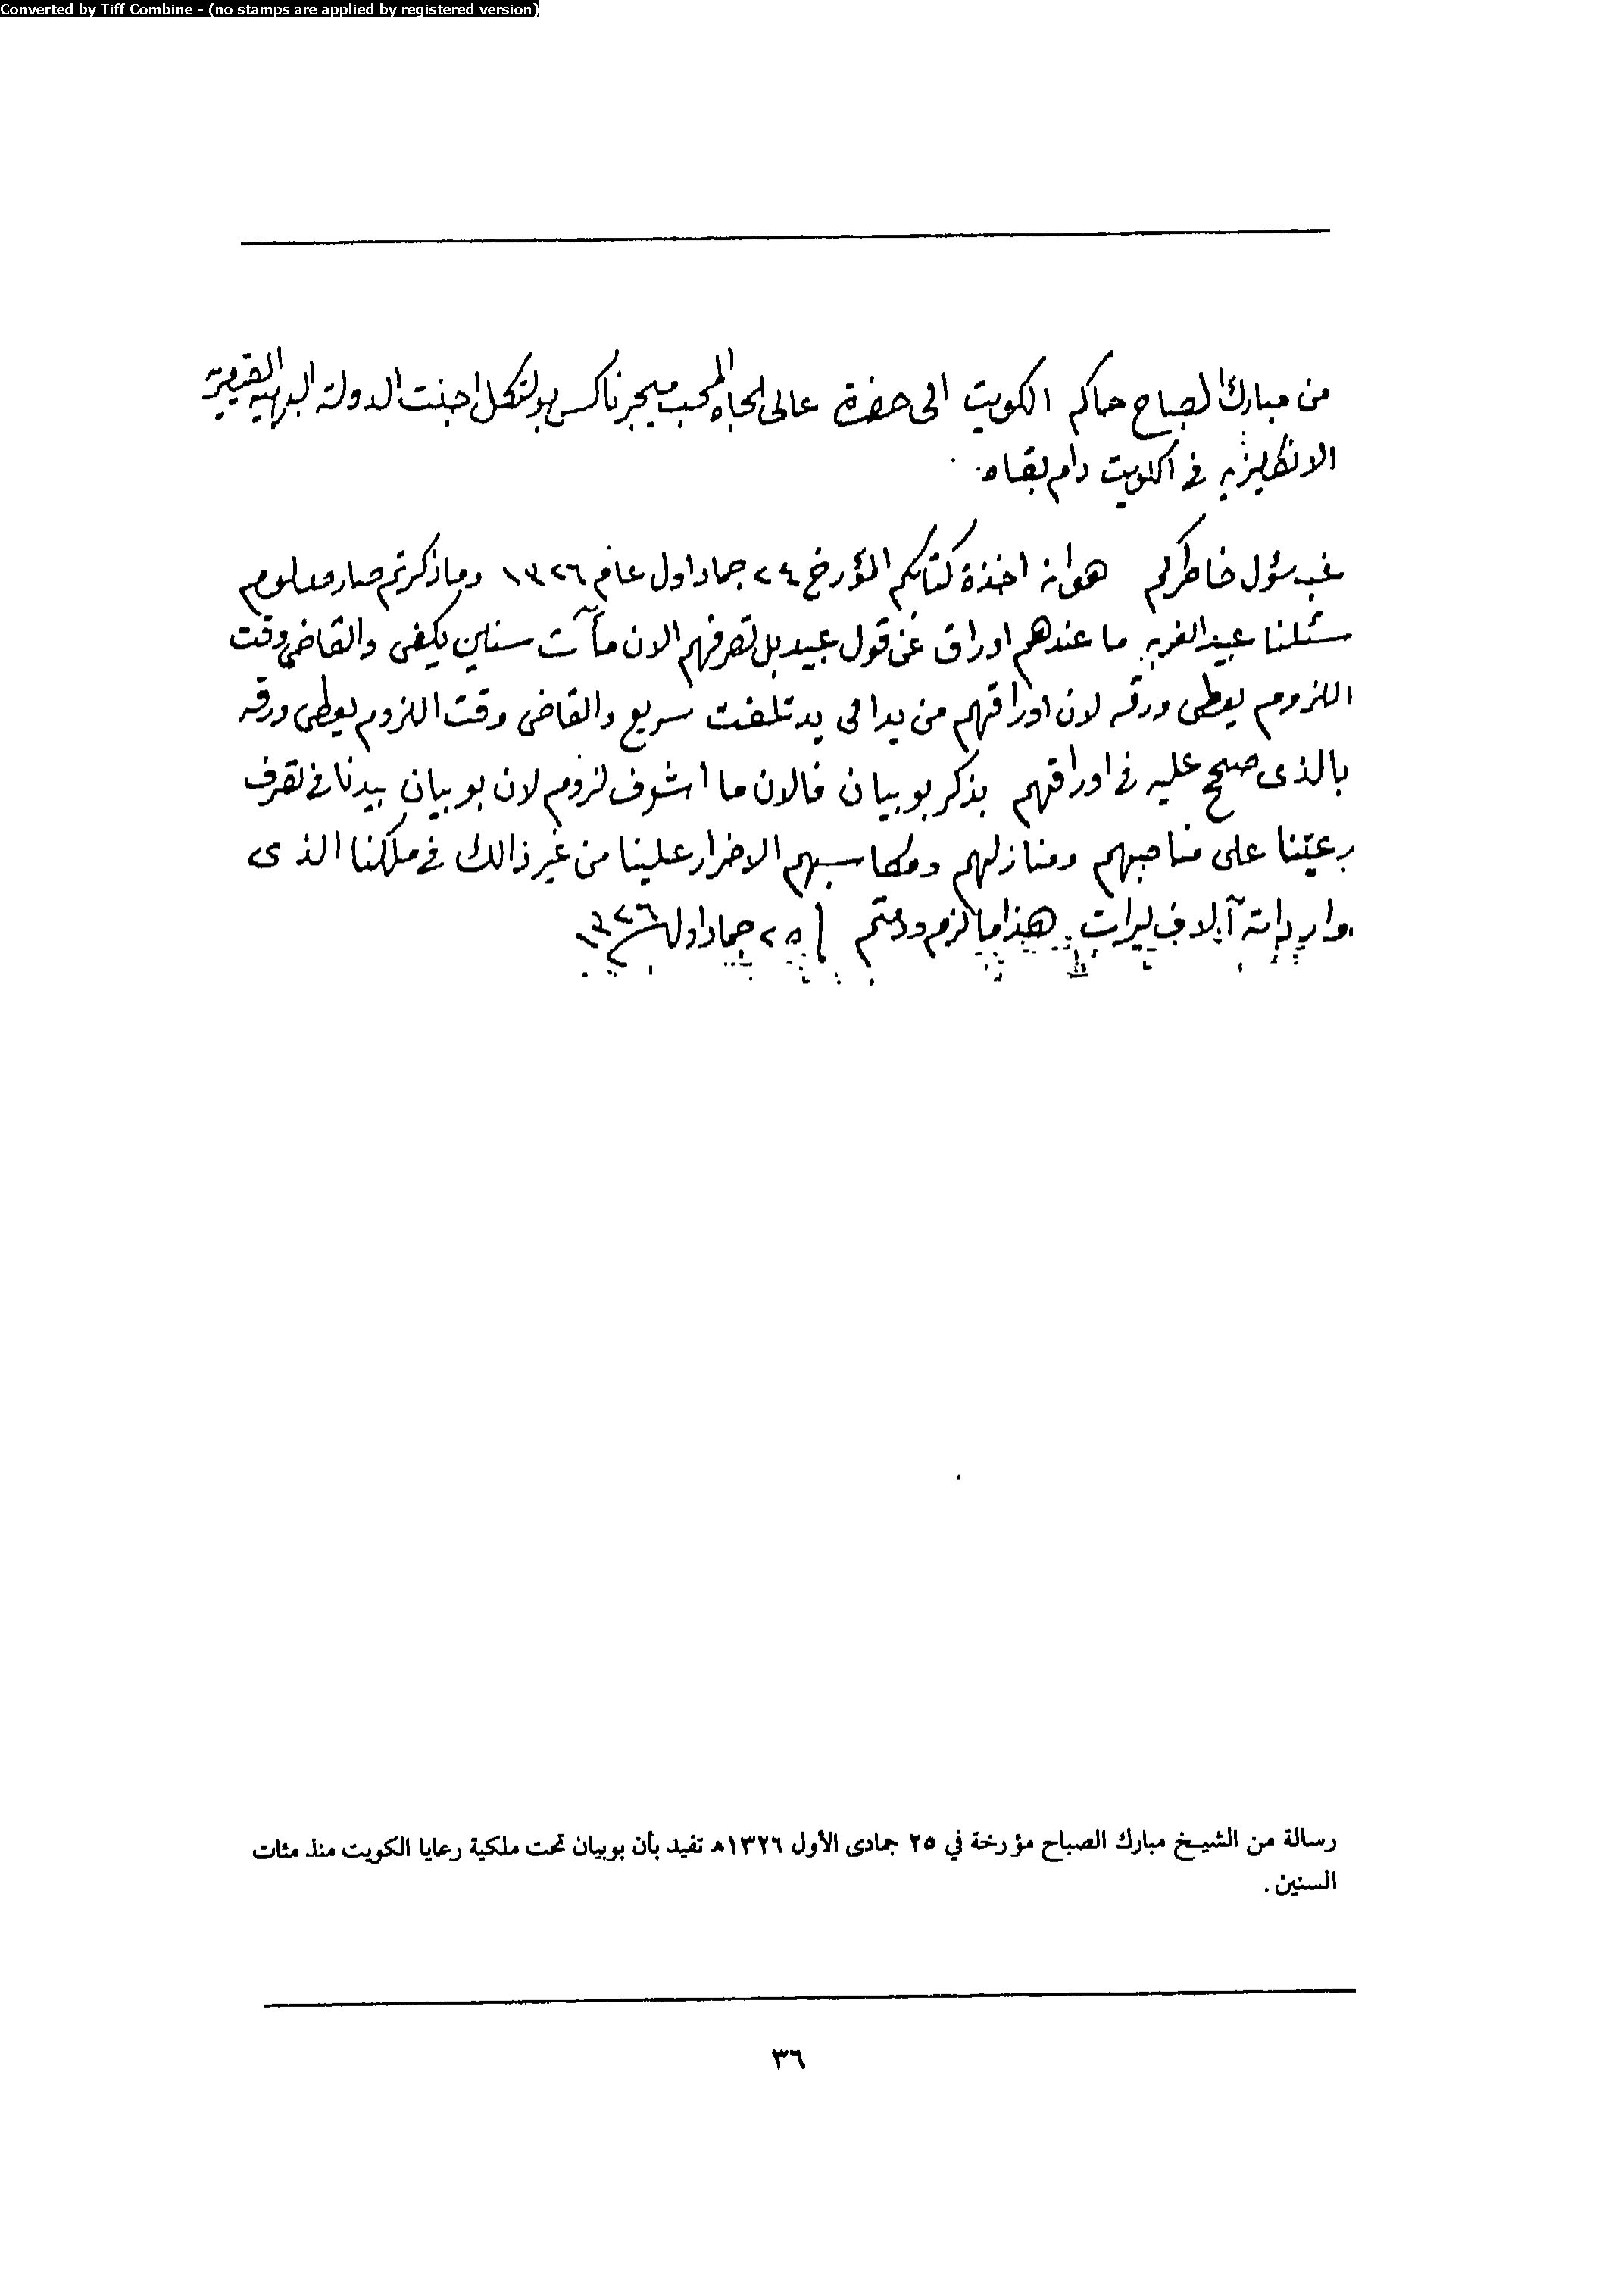 Converted by Tiff Combine - (no stamps are applied by registered version)
من مبارك الصباح حاكم الكويت الى حضرة عالى الجاه المحب ميجر ناكس بولتكل اجنت الدولة البهية القيصرية
الانكليزيه في الكويت دام بقاه
غب سؤل خاطركم هوانه اخذة كتابكم المؤرخ ٢٤ جماد اول عام ١٣٢٦ وما ذكرتم صار معلوم
سئلنا عبيد ما عندهم اوراق عن قول عبيد بل تصرفهم الان مآت سناين يكفى والقاضى وقت
اللزوم يعطى ورقه لان اوراقهم من يد الى يد تلفت سريع والقاضى وقت اللزوم يعطى ورقه
بالذى صح عليه في اوراقهم بذكر بوبيان فالان ما اشوف لزوم لان بوبيان بيدنا في تصرف
رعيتنا على مناصبهم ومنازلهم ومكاسبهم الاضرار علينا من غير ذالك في ملكنا الذى
وارداته آلاف ليرات هذا ما لزم ودمتم ٢٥ جماد اول ١٣٢٦
رسالة من الشيخ مبارك الصباح مؤرخة في ٢٥ جمادى الأول ١٣٢٦هـ تفيد بأن بوبيان تحت ملكية رعايا الكويت منذ مئات
السنين .
٣٦